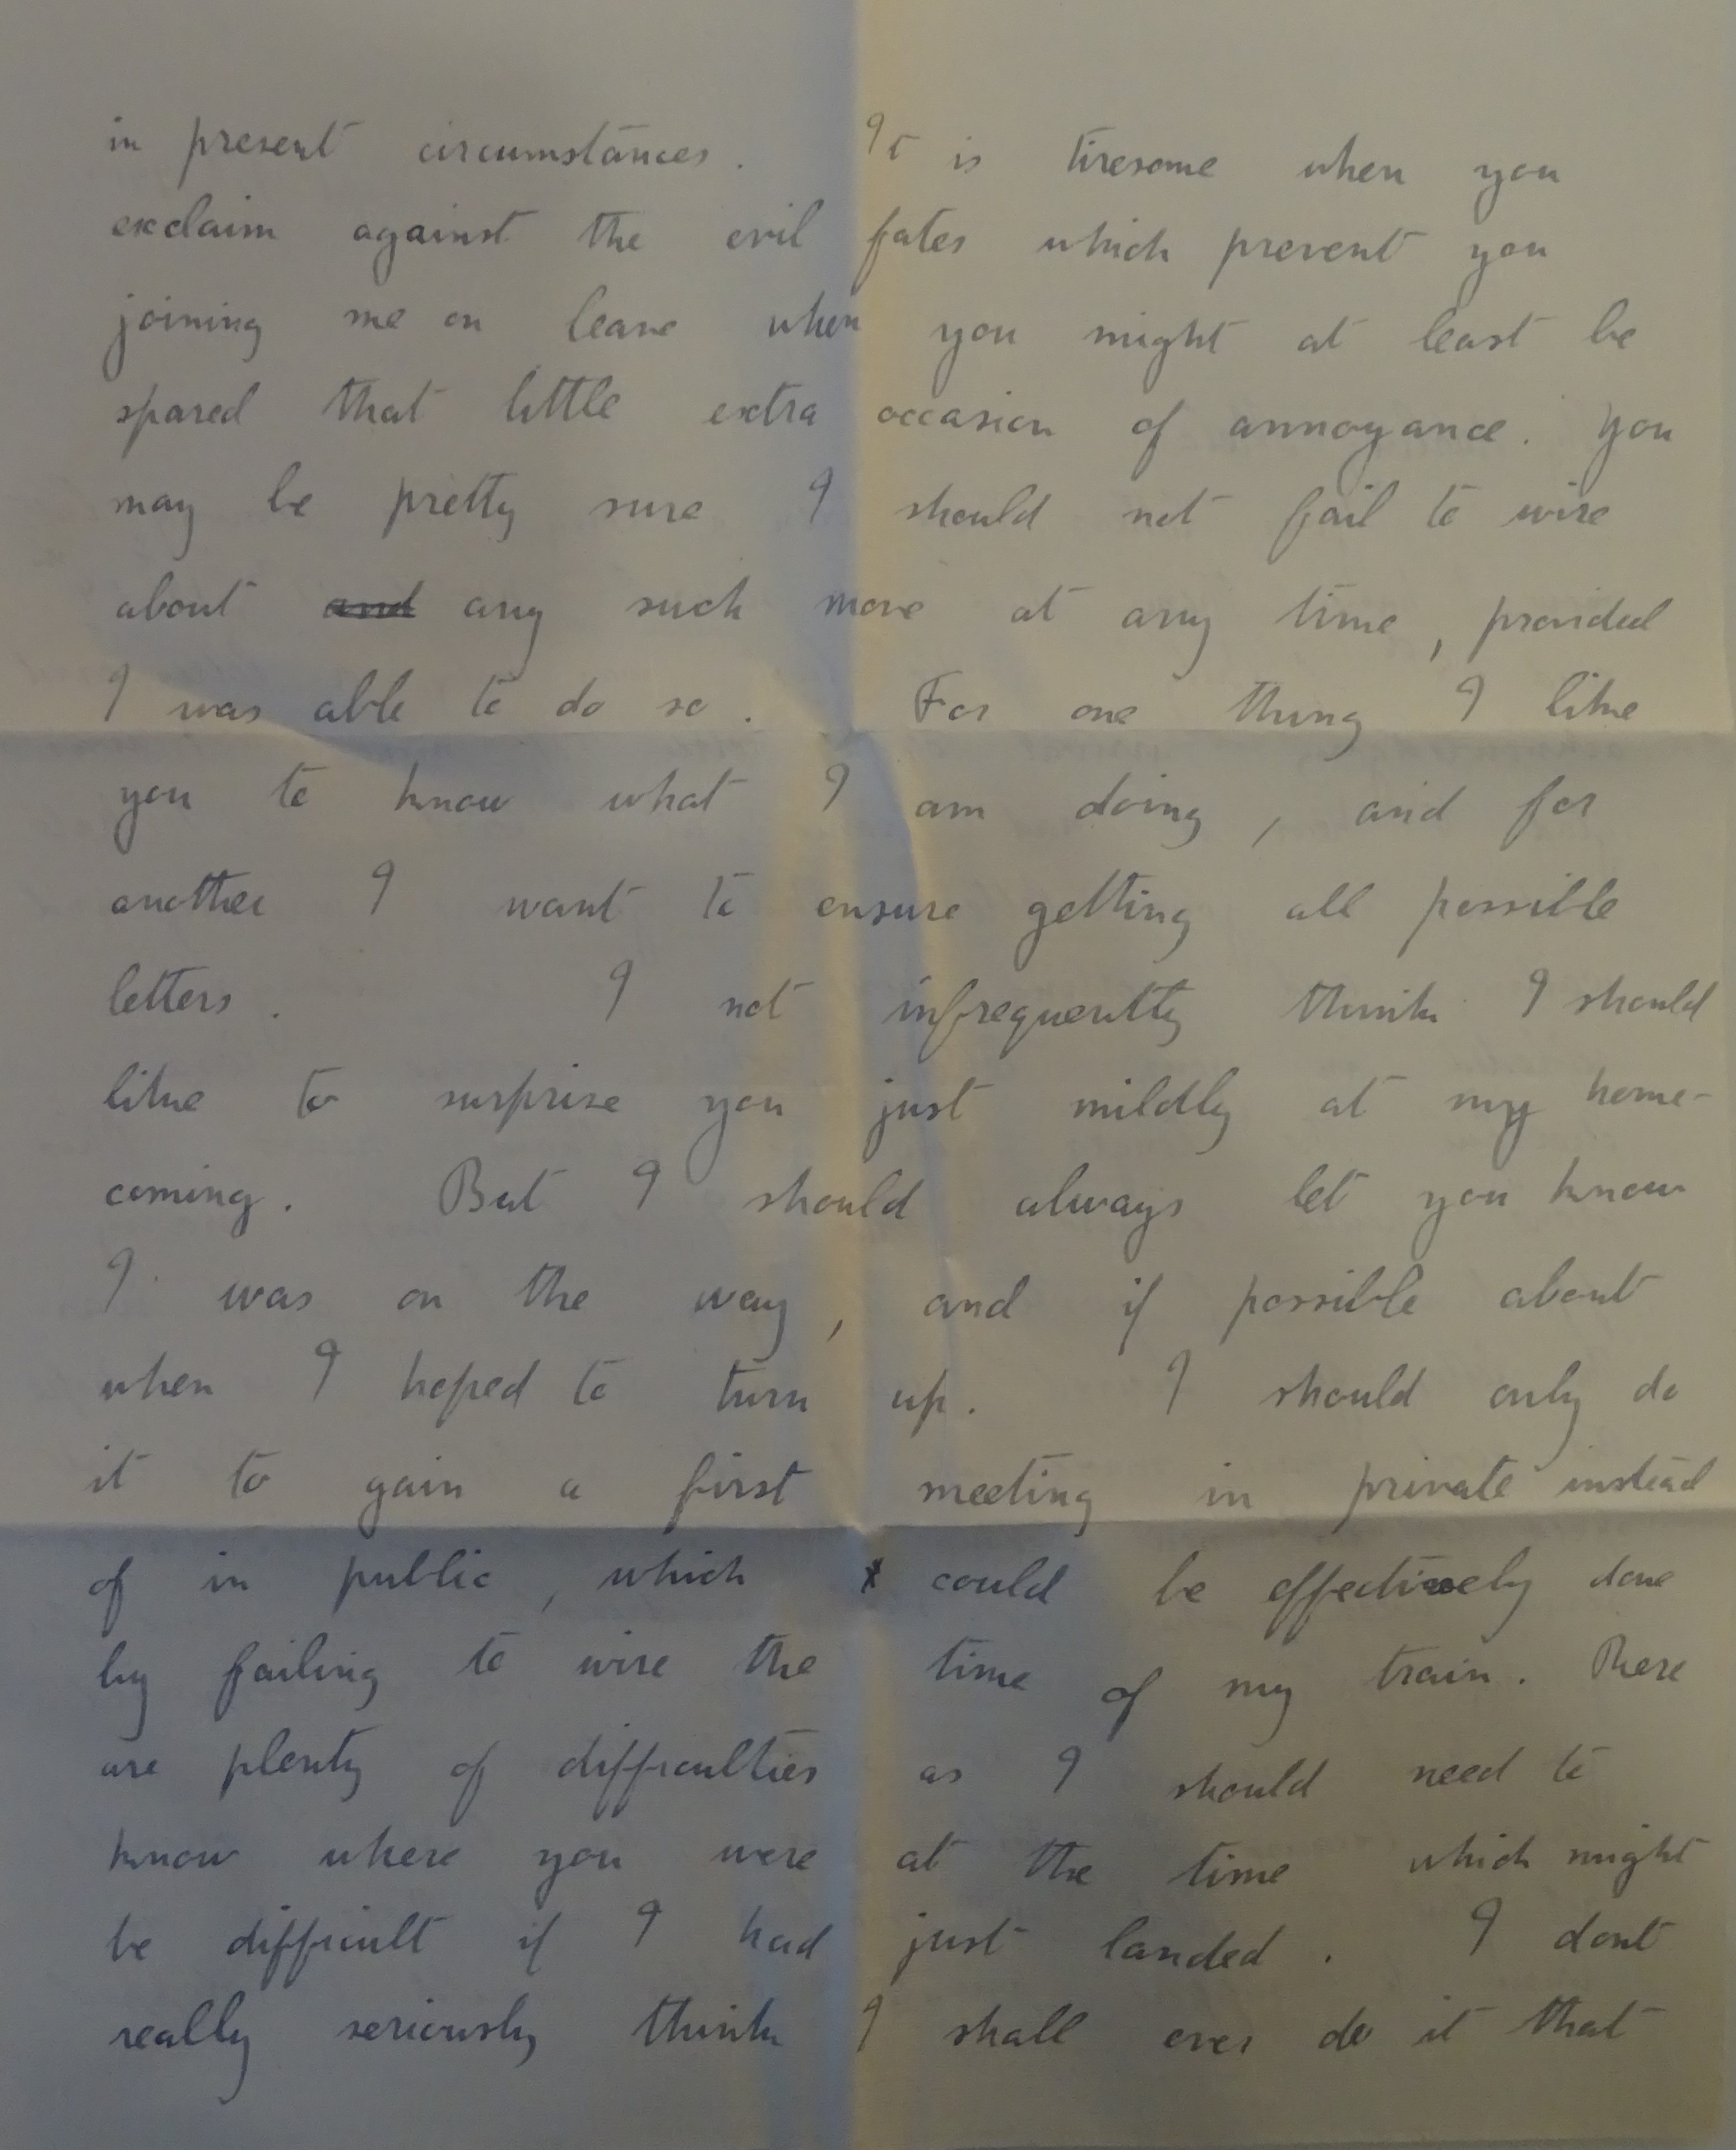 in present circumstances. It is tiresome when you
exclaim against the evil fates which prevent you
joining me on leave when you might at least be
spared that little extra occasion of annoyance. You
may be pretty sure I should not fail to wire
about and any such move at any time, provided
I was able to do so. For one thing I like
you to know what I am doing, and for
another I want to ensure getting all possible
letters. I not infrequently think I should
like to surprise you just mildly at my home-
coming. But I should always let you know
I was on the way, and if possible about
when I hoped to turn up. I should only do
it to gain a first meeting in private instead
of in public, which could be effectively done
by failing to wire the time of my train. There
are plenty of difficulties as I should need to
know where you were at the time which might
be difficult if I had just landed. I dont
really seriously think I shall ever do it that